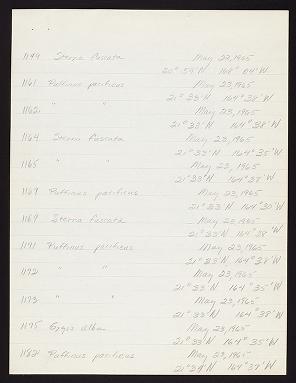 1149 Sterna fuscata May 22, 1965
20° 59'N 168° 04'W
1161 Puffinus pacificus May 23, 1965
21° 33'N 164° 38'W
1162 " " May 23, 1965
21° 33'N 164° 38'W
1164 Sterna fuscata May 23, 1965
21° 33'N 164° 35'W
1165 " " May 23, 1965
21° 33'N 164° 38'W
1167 Puffinus pacificus May 23, 1965
21° 33'N 164° 30'W
1169 Sterna fuscata May 23, 1965
21° 33'N 164° 38'W
1171 Puffinus pacificus May 23, 1965
21° 33'N 164° 38'W
1172 " " May 23, 1965
21° 33'N 164° 35'W
1173 " " May 23, 1965
21° 33'N 164° 38'W
1175 Gygis alba May 23, 1965
21° 33'N 164° 35'W
1182 Puffinus pacificus May 23, 1965
21° 34'N 164° 37'W